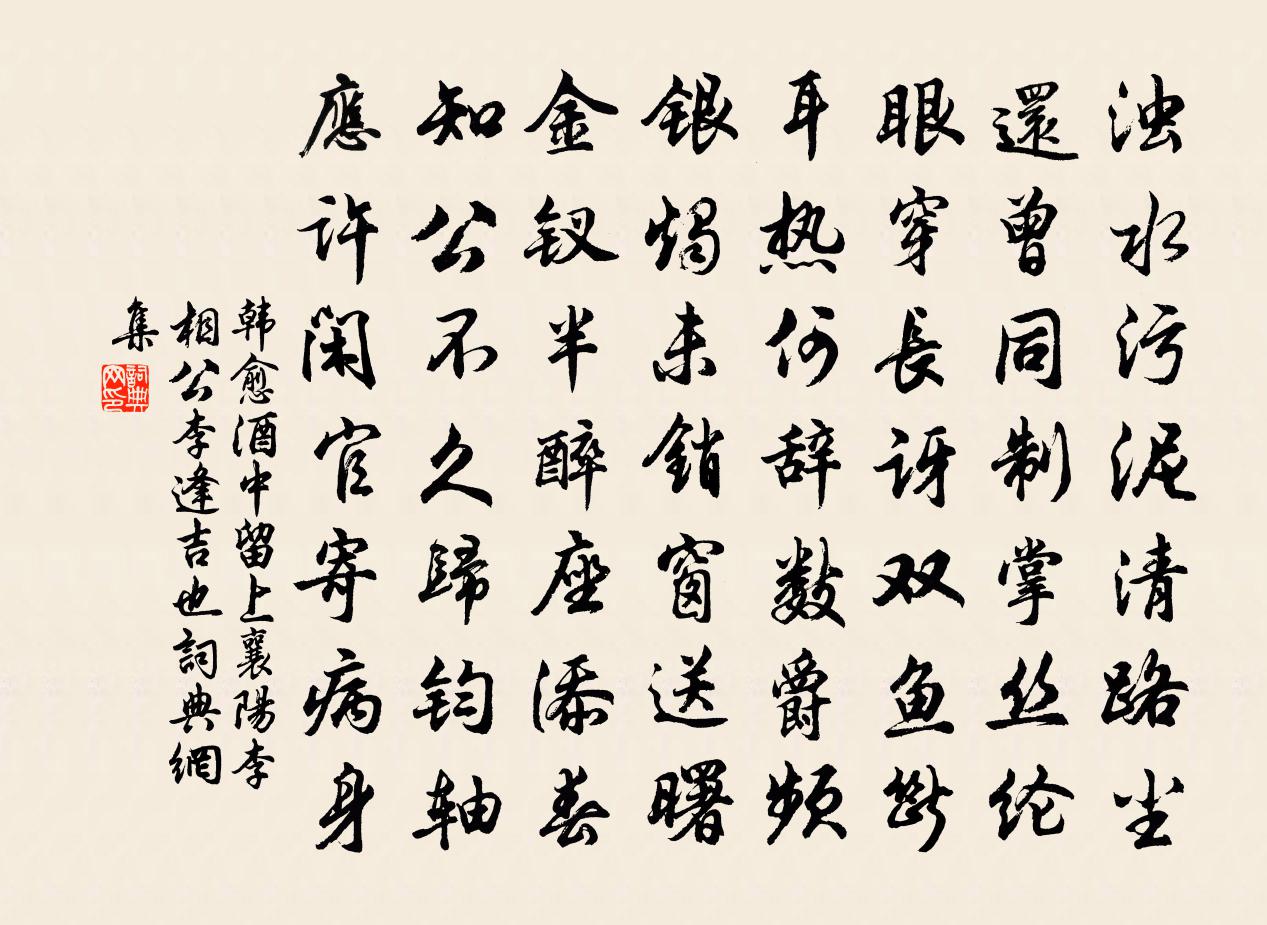 浊水污泥清路尘
還曾同制掌丝纶
眼穿長讶双鱼断
耳热何辞数爵频
銀燭未銷窗送曙
金钗半醉座添春
知公不久歸钧轴
應许閑官寄病身
韩愈酒中留上襄陽李
相公李逢吉也詞典網
集
詞典网印